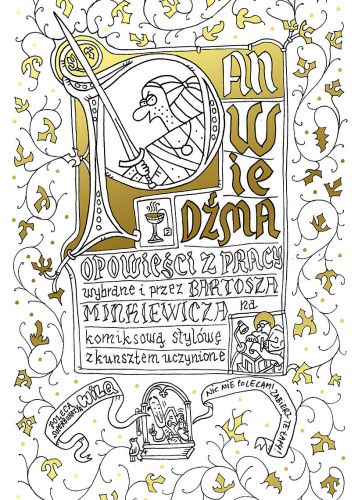 PAN
Wie
DŹMA
OPOWIEŚCI Z PRACY
wybrane i przez BARTOSZA
MINKIEWICZA na
komiksową stylówę
z kunsztem uczynione
POLECA
SUPERBOHATER WILQ
NIC NIE POLECAM! ZABIERZ TE ŁAPY!